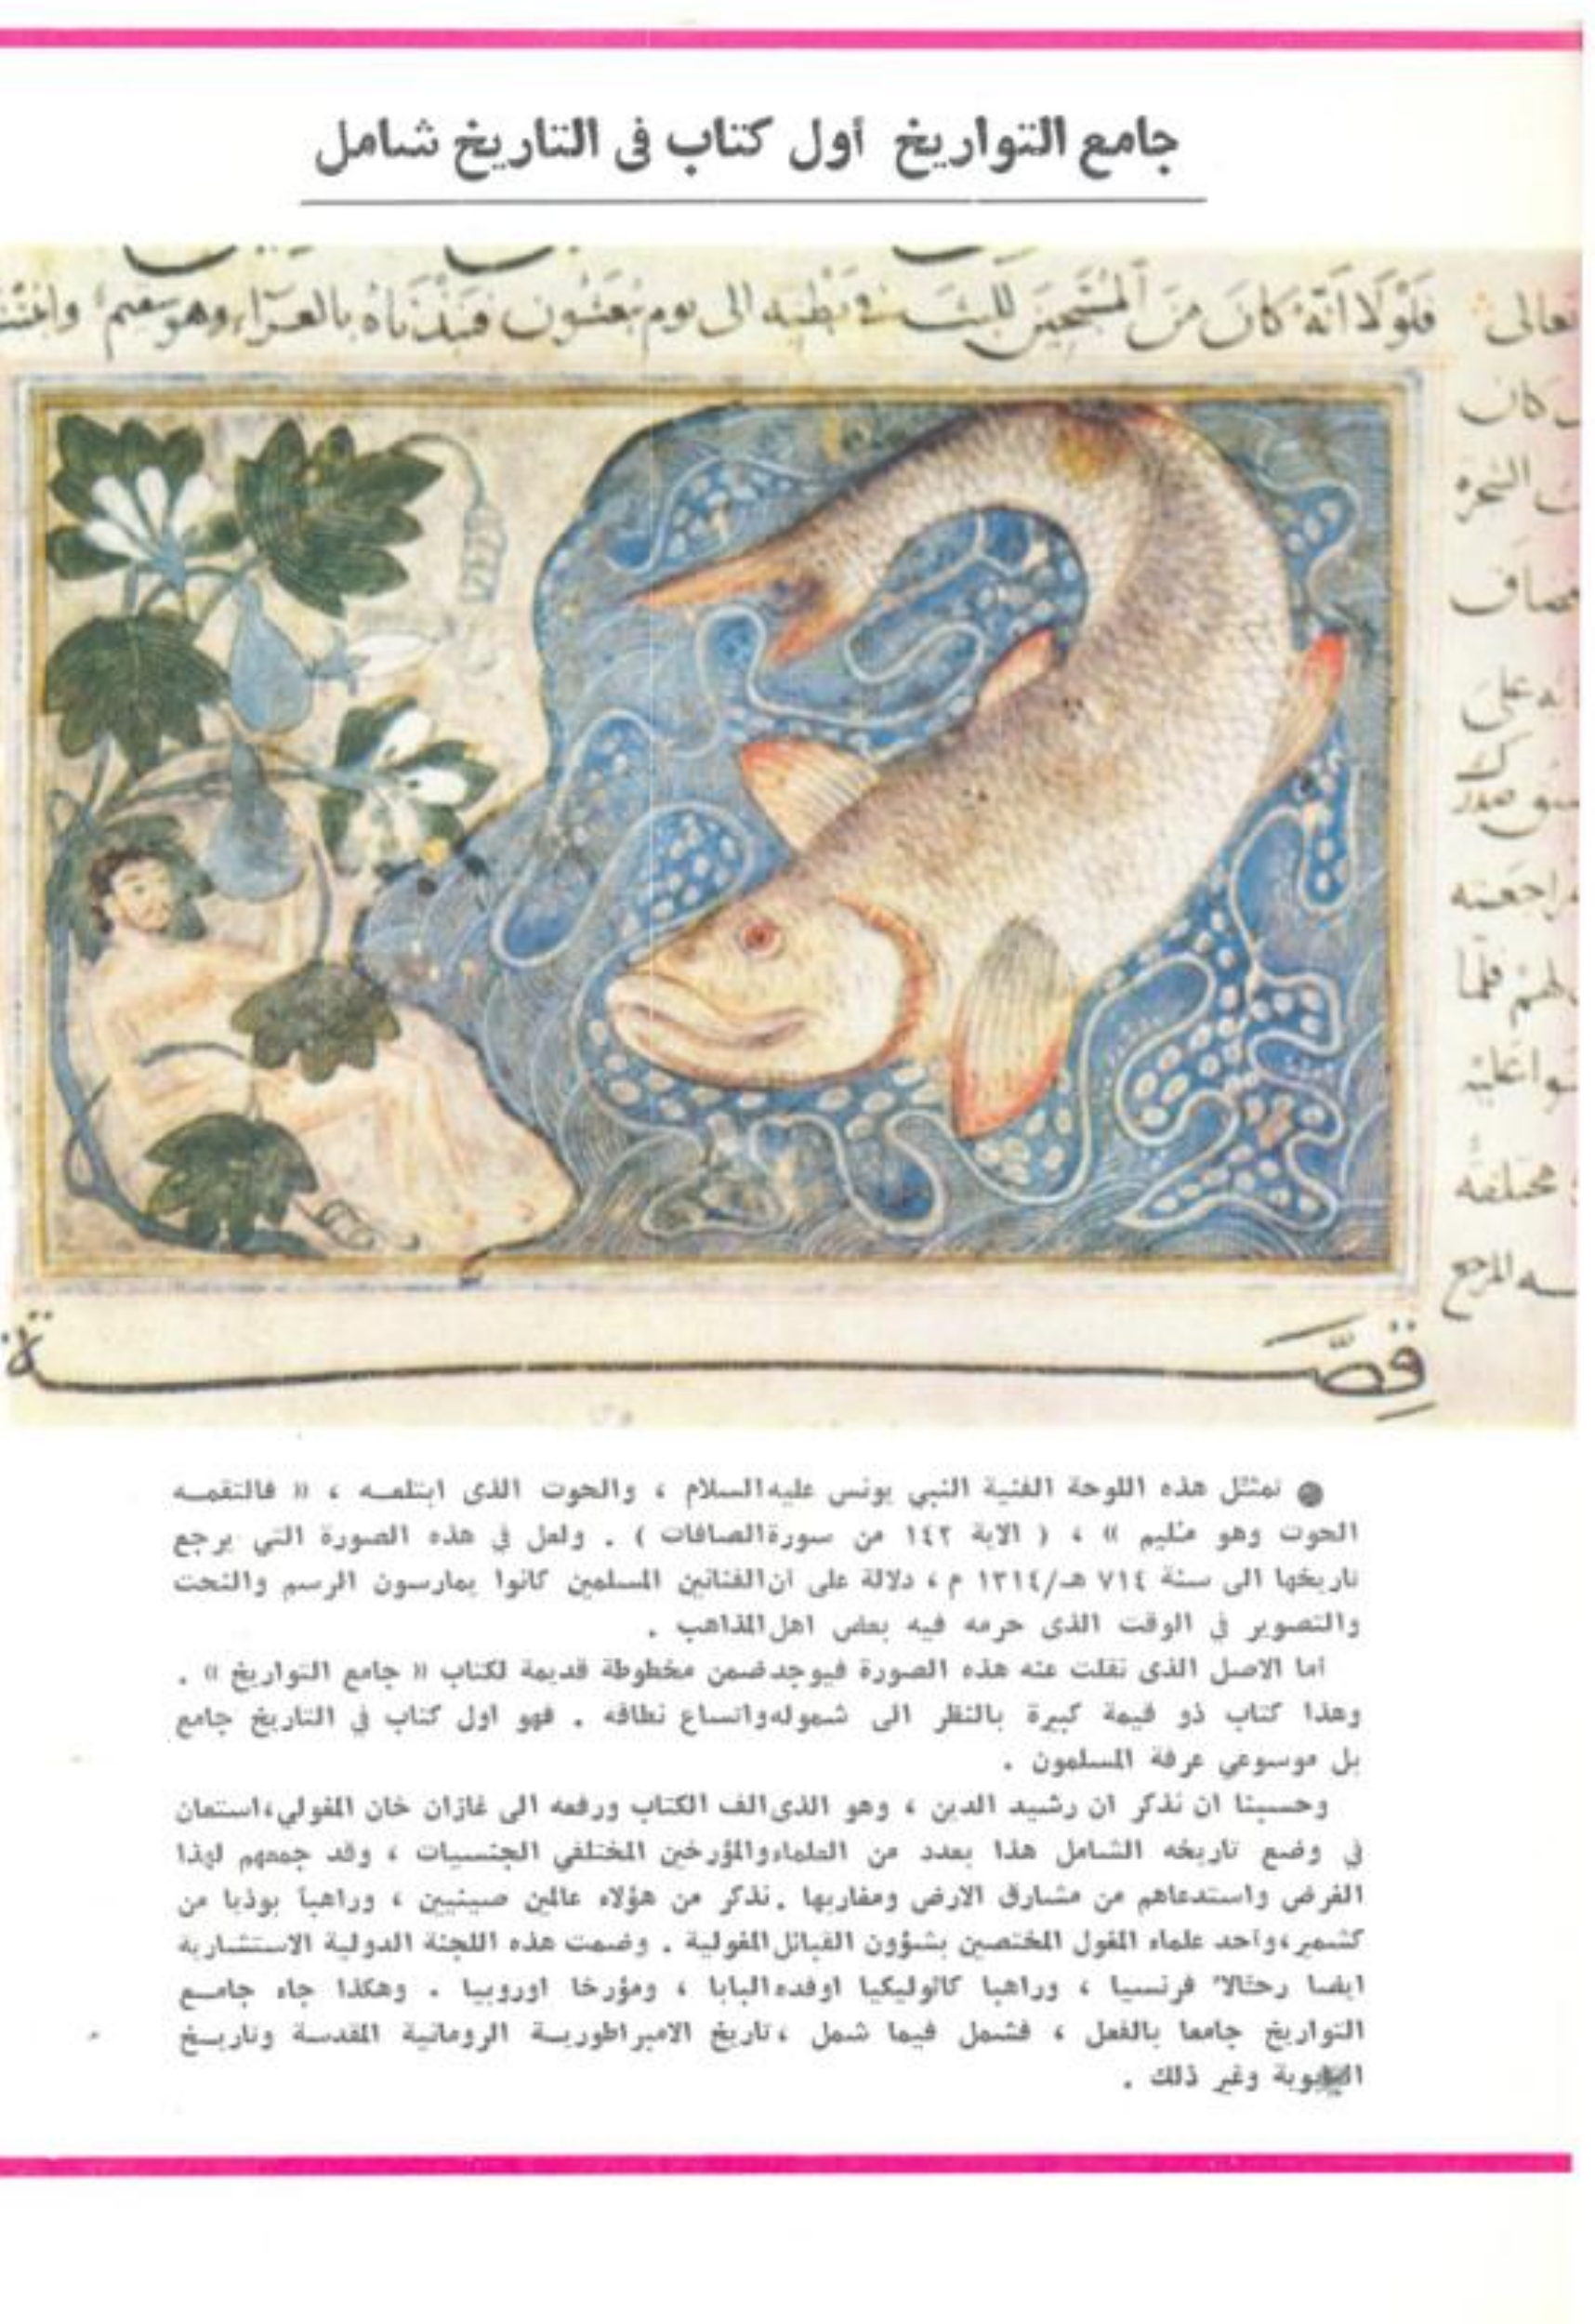 جامع التواريخ أول كتاب فى التاريخ شامل
تعالى فَلَوْلَا أَنَّهُ كَانَ مِنَ المُسَبِّحِينَ للبث فى بَطْنِهِ الى يوم يُبعَثُون فَنَبَذْنَاهُ بالعَرَاء وهو سقيم
كان
على
مراجعته
فلما
مختلفه
المرجع
قِصَّة
● تمثل هذه اللوحة الفنية النبي يونس عليه السلام ، والحوت الذى ابتلعه ، « فالتقمه
الحوت وهو مليم » ، ( الاية ١٤٢ من سورة الصافات ) . ولعل في هذه الصورة التي يرجع
تاريخها الى سنة ٧١٤ هـ/١٣١٤ م ، دلالة على ان الفنانين المسلمين كانوا يمارسون الرسم والنحت
والتصوير في الوقت الذى حرمه فيه بعض اهل المذاهب .
أما الاصل الذى نقلت عنه هذه الصورة فيوجد ضمن مخطوطة قديمة لكتاب « جامع التواريخ » .
وهذا كتاب ذو قيمة كبيرة بالنظر الى شموله واتساع نطاقه . فهو اول كتاب في التاريخ جامع
بل موسوعي عرفة المسلمون .
وحسبنا ان نذكر ان رشيد الدين ، وهو الذى الف الكتاب ورفعه الى غازان خان المغولي ، استعان
في وضع تاريخه الشامل هذا بعدد من العلماء والمؤرخين المختلفي الجنسيات ، وقد جمعهم لهذا
الغرض واستدعاهم من مشارق الارض ومغاربها . نذكر من هؤلاء عالمين صينيين ، وراهباً بوذيا من
كشمير ، وأحد علماء المغول المختصين بشؤون القبائل المغولية . وضمت هذه اللجنة الدولية الاستشارية
ايضا رحّالا فرنسيا ، وراهبا كاثوليكيا اوفده البابا ، ومؤرخا اوروبيا . وهكذا جاء جامع
التواريخ جامعا بالفعل ، فشمل فيما شمل ، تاريخ الامبراطورية الرومانية المقدسة وتاريخ
البابوية وغير ذلك .